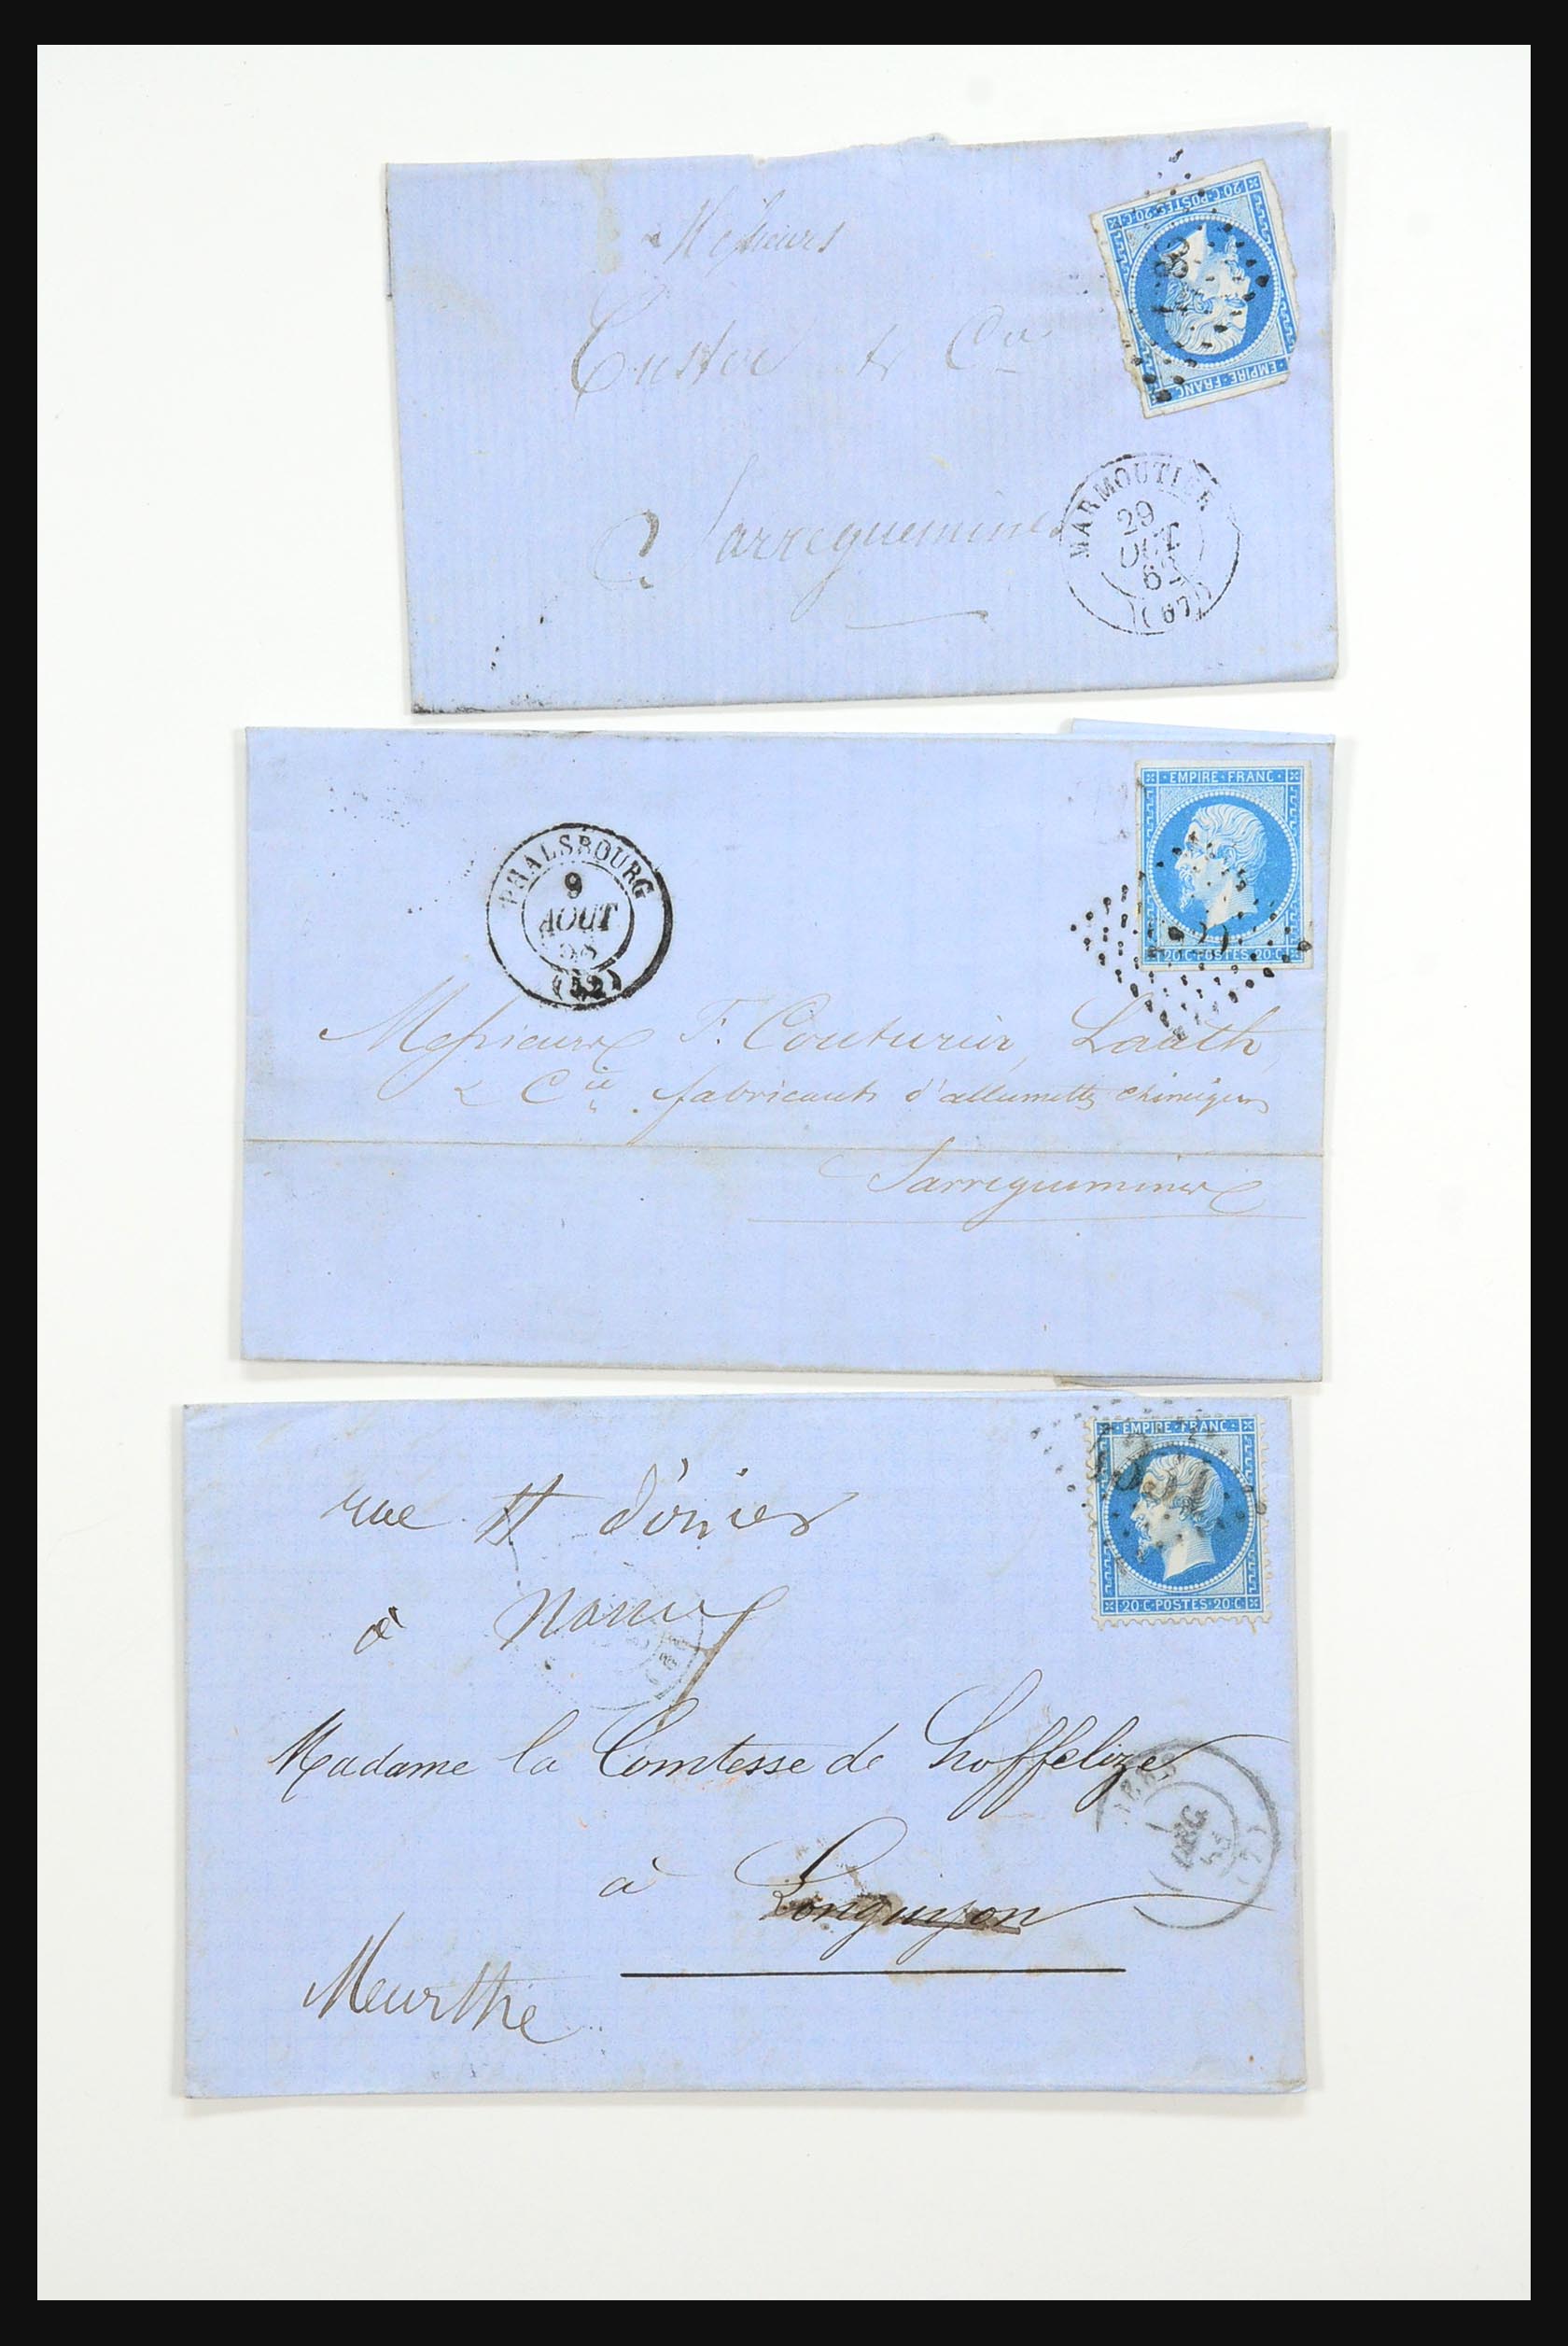 Messieurs
& Cie
Sarreguemines
20·C·POSTES·20·C
EMPIRE·FRANC
MARMOUTIER
29
OCT
(67)
EMPIRE·FRANC·
20·C·POSTES·20·C
PHALSBOURG
9
AOUT
58
(52)
Messieurs F. Couturier, Lauth,
& Cie fabricants d'allumettes chimiques
Sarreguemines
EMPIRE·FRANC·
20·C·POSTES·20·C
rue St dizier
à Nancy
Madame la Comtesse de hoffelize
à Longuyon
Meurthe